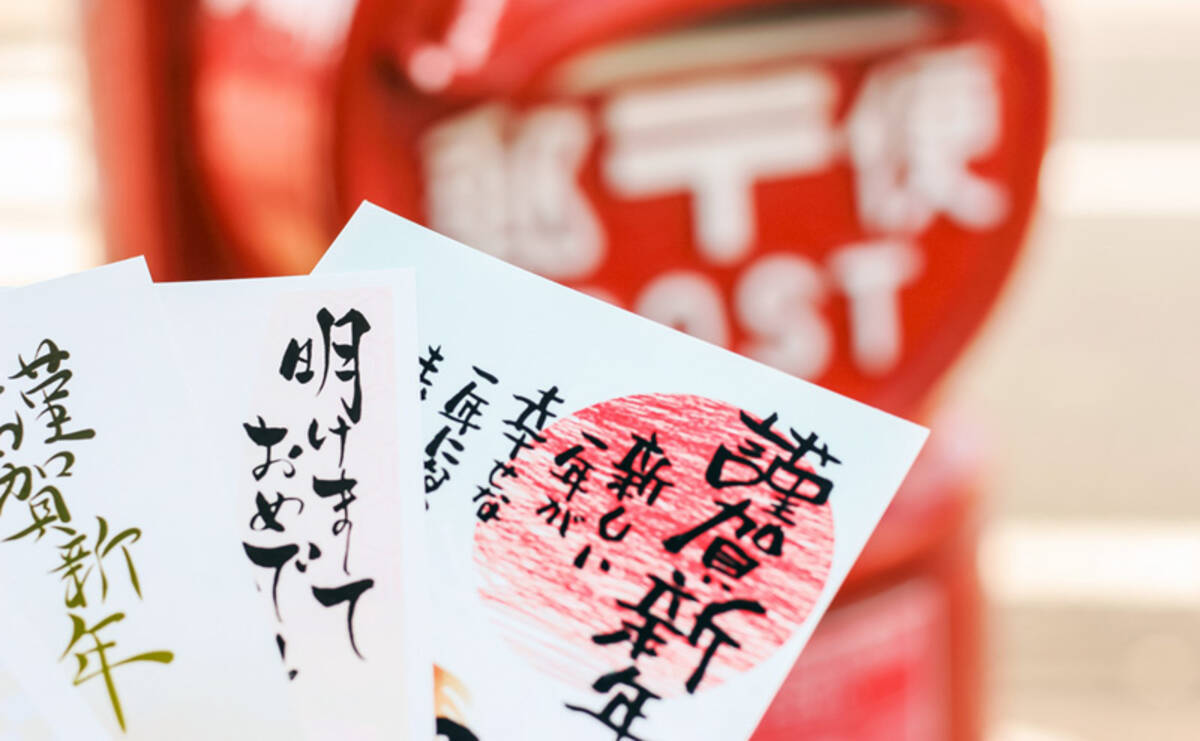 郵〒便
OST
謹賀新年
新しい
一年が
幸せな
一年に
明けまして
おめで!
謹賀新年